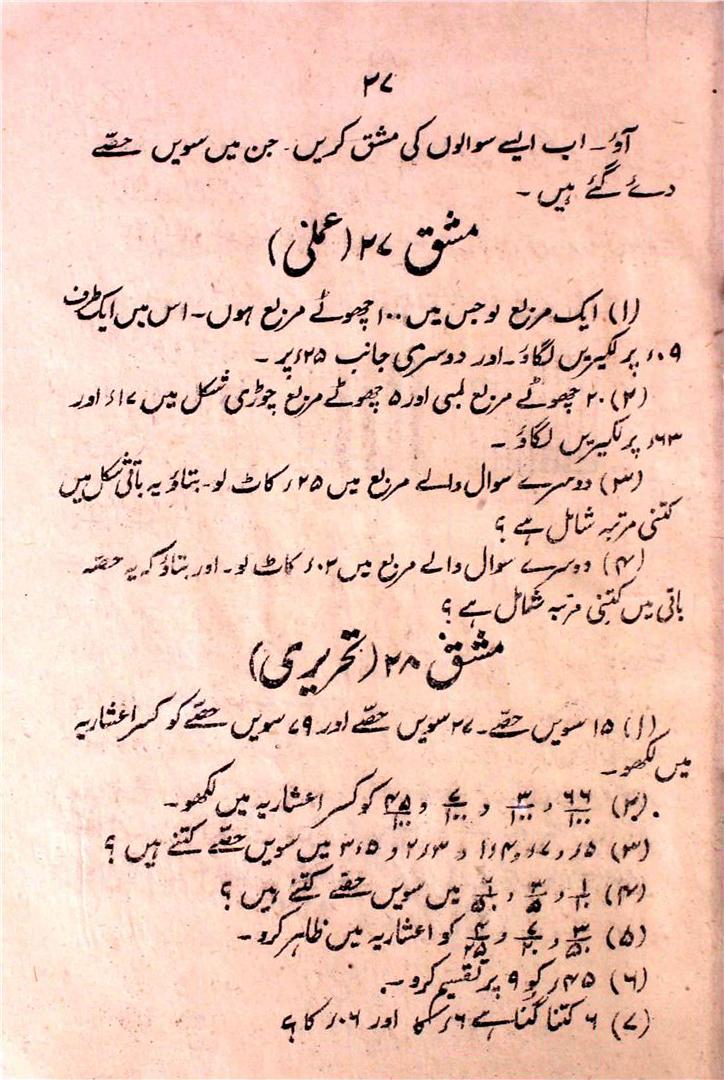 ۲۷
آؤ۔ اب ایسے سوالوں کی مشق کریں۔ جن میں سویں حصّے
دئے گئے ہیں۔
مشق ۲۷ (عملی)
(۱) ایک مربع لو جس میں ۱۰۰ چھوٹے مربع ہوں۔ اس میں ایک طرف
۰۹ء پر لکیریں لگاؤ۔ اور دوسری جانب ۲۵ء پر۔
(۲) ۲۰ چھوٹے مربع لمبی اور ۵ چھوٹے مربع چوڑی شکل میں ۱۷ء اور
۶۳ء پر لکیریں لگاؤ۔
(۳) دوسرے سوال والے مربع میں ۲۵ء کاٹ لو۔ بتاؤ یہ باقی شکل میں
کتنی مرتبہ شامل ہے ؟
(۴) دوسرے سوال والے مربع میں ۰۲ء کاٹ لو۔ اور بتاؤ کہ یہ حصّہ
باقی میں کتنی مرتبہ شامل ہے ؟
مشق ۲۸ (تحریری)
(۱) ۱۵ سویں حصّے۔ ۲۷ سویں حصّے اور ۷۹ سویں حصّے کو کسر اعشاریہ
میں لکھو۔
(۲) ۶۶/۱۰۰ و ۳/۱۰۰ و ۷/۱۰۰ و ۴۵/۱۰۰ کو کسر اعشاریہ میں لکھو۔
(۳) ۵ء و ۷ء و ۴ء۱ و ۳ء۲ و ۵ء۳ میں سویں حصّے کتنے ہیں ؟
(۴) ۱/۱۰ و ۳/۵ و ۶/۵۰ میں سویں حصّے کتنے ہیں ؟
(۵) ۳/۵۰ و ۷/۲۰ و ۴/۲۵ کو اعشاریہ میں ظاہر کرو۔
(۶) ۴۵ء کو ۹ پر تقسیم کرو۔
(۷) ۶ کتنا گنا ہے ۶ء کا اور ۰۶ء کا ؟